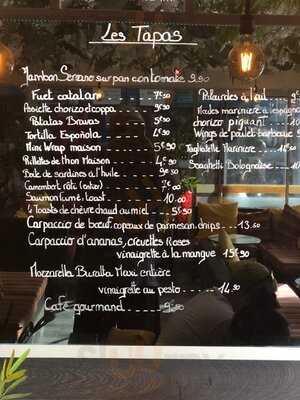 Les Tapas
Jambon Serrano sur pan con tomate 9.90
Fuet catalan 7.50
Assiette chorizo et coppa 9.50
Patatas Bravas 5.90
Tortilla Española 4.90
Mini Wrap maison 5.90
Rillettes de thon Maison 4.90
Boîte de sardines à l'huile 9.50
Camembert rôti (entier) 7.00
Saumon fumé, toast 10.00
4 Toasts de chèvre chaud au miel 5.50
Carpaccio de bœuf, copeaux de parmesan, chips 13.50
Carpaccio d'ananas, crevettes Roses
vinaigrette à la mangue 15.90
Mozzarella Buratta Maxi entière
vinaigrette au pesto 14.90
Café gourmand 9.50
Palourdes à l'ail 9
Moules marinière à l'espagnole
chorizo piquant 10
Wings de poulet barbecue
Tagliatelle Marinière 1
Spaghetti Bolognaise 1